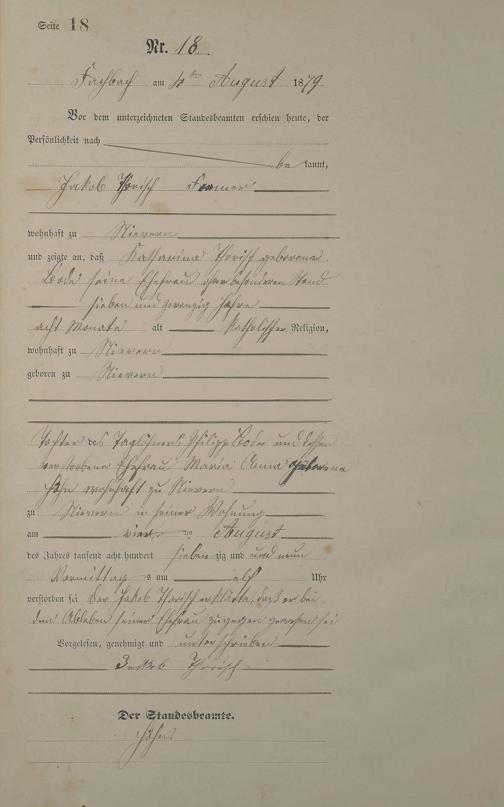 Seite 18
Nr. 18.
Fachbach am 4ten August 1879
Vor dem unterzeichneten Standesbeamten erschien heute, der
Persönlichkeit nach
be kannt,
Jakob Thorisch Former
wohnhaft zu Nievern
und zeigte an, daß Katharina Thorisch geborene
Bode seine Ehefrau ohne besonderen Stand
sieben und zwanzig Jahre
acht Monate alt katholischer Religion,
wohnhaft zu Nievern
geboren zu Nievern
Tochter des Taglöhners Philipp Bode und dessen
verstorbene Ehefrau Maria Anna geborene
Höhn wohnhaft zu Nievern
zu Nievern in seiner Wohnung
am vier ten August
des Jahres tausend acht hundert sieben zig und und neun
Vormittag s um elf Uhr
verstorben sei Der Jakob Thorisch erklärte, dass er bei
dem Ableben seiner Ehefrau zugegen gewesen sei
Vorgelesen, genehmigt und unterschrieben
Jakob Thorisch
Der Standesbeamte.
Höhn